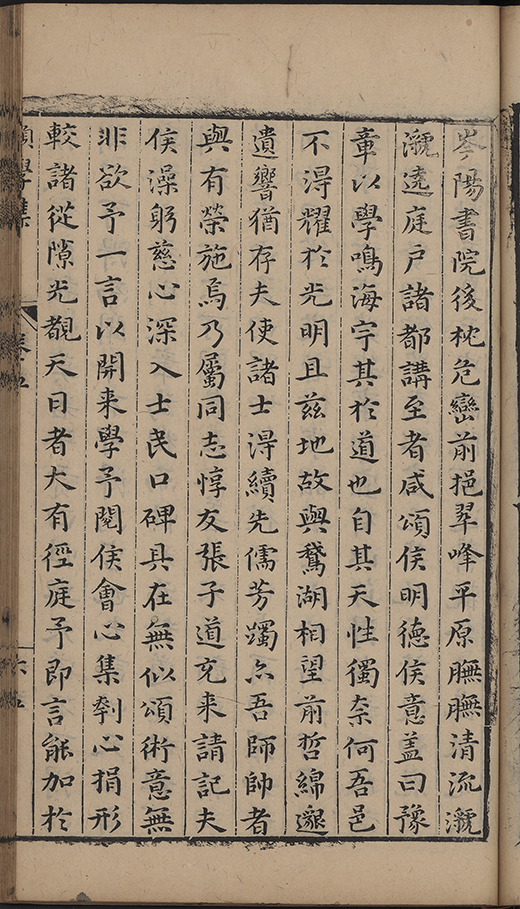 岑陽書院後枕危巒前挹翠峰平原膴膴清流㶁
㶁遶庭戶諸都講至者咸頌侯明德侯意蓋曰豫
章以學鳴海宇其於道也自其天性獨奈何吾邑
不得耀於光明且茲地故與鵞湖相望前哲綿邈
遺響猶存夫使諸士得續先儒芳躅亦吾師帥者
與有榮施焉乃屬同志惇友張子道充來請記夫
侯澡躬慈心深入士民口碑具在無似頌術意無
非欲予一言以開來學予閱侯會心集刳心捐形
較諸從隙光覩天日者大有徑庭予即言能加於
願學集
卷五